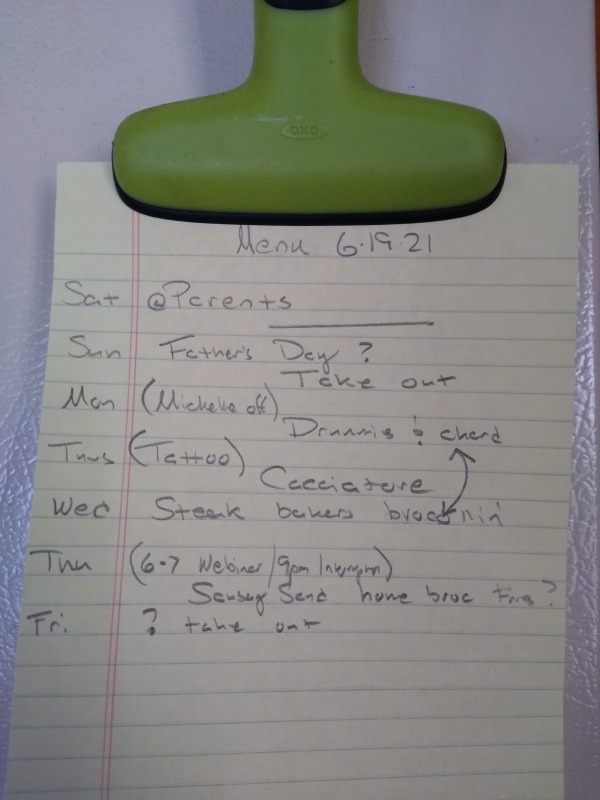 OXO
Menu 6.19.21
Sat @Parents
Sun Father's Day ?
Take out
Mon (Michelle off)
Drumms & chard
Tues (Tattoo)
Cacciatore
Wed Steak bakers
Thu (6-7 Webiner/9pm
Sausag Sand home broc Fries?
Fri. ? take out